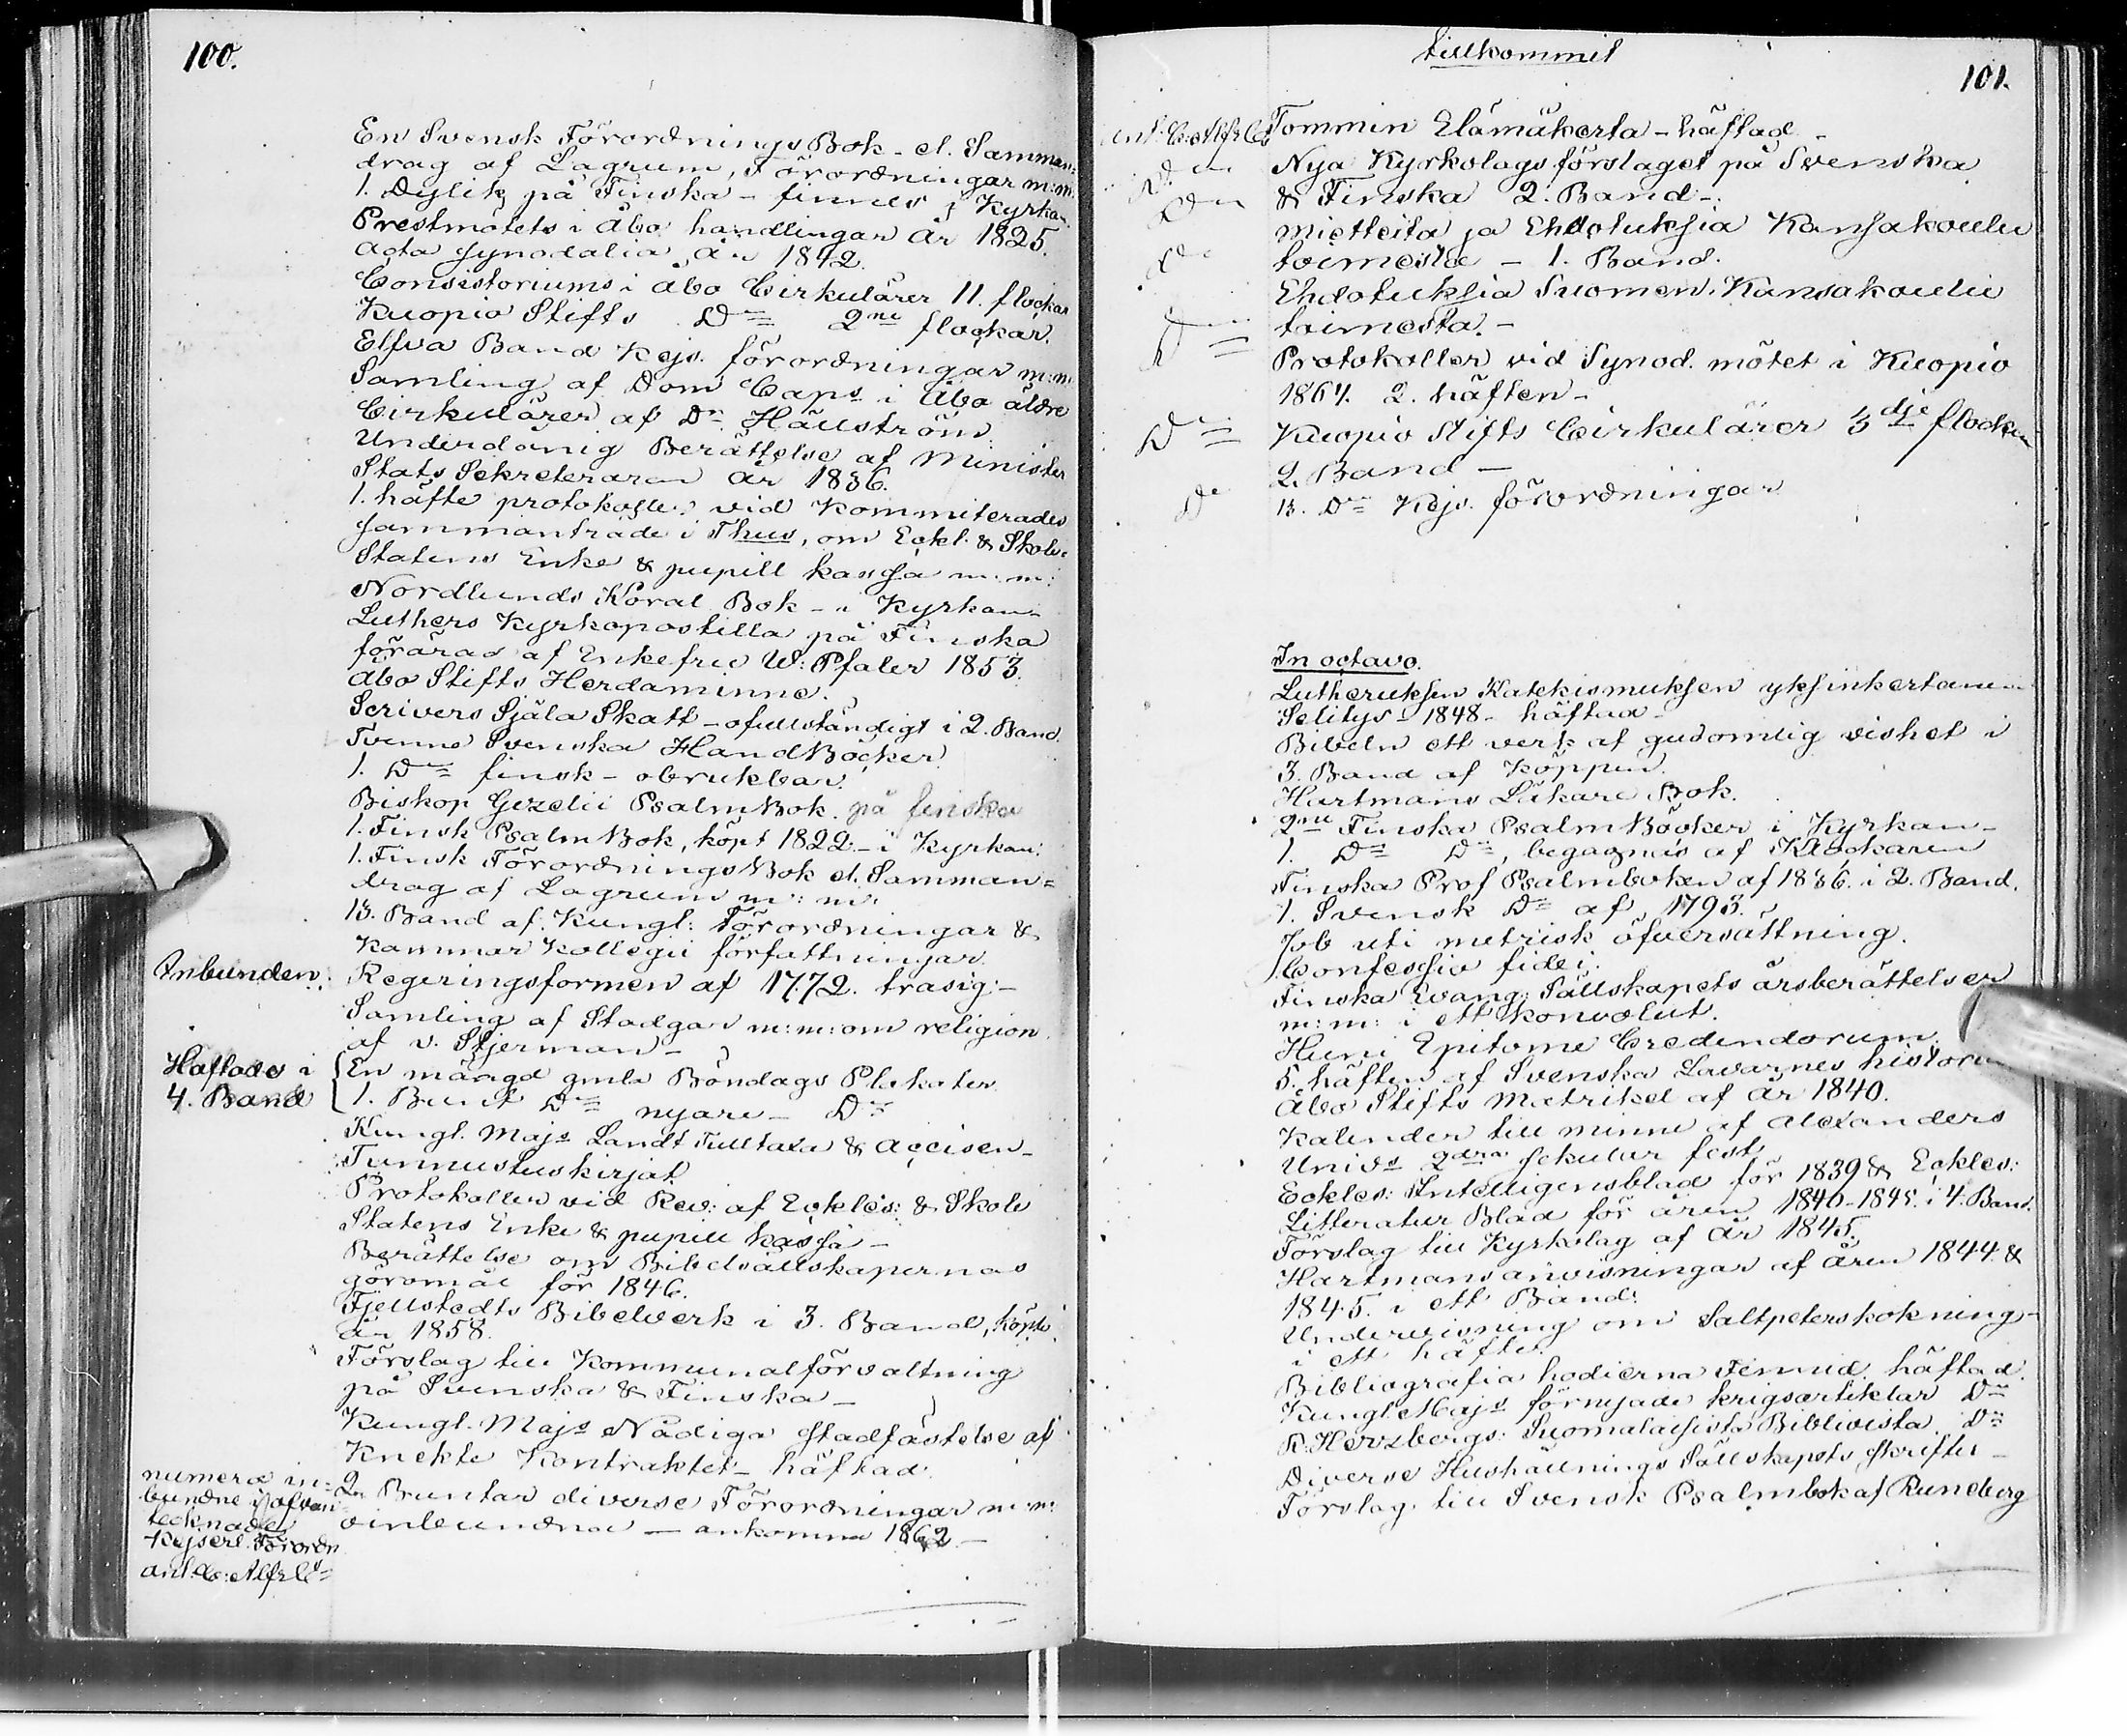 100.
En Svensk FörordningsBok - el. Samman-
drag af Lagrum, Förordningar m:m:
1. Dylik på Finska - finnes i Kyrkan
Prestmötets i Åbo handlingar År 1825.
Acta Synodalia År 1842.
Consistoriums i Åbo Cirkulärer 11. flockar
Kuopio Stifts Do 2ne flockar.
Elfva Band Kejs. förordningar m:m:
Samling af Dom Caps i Åbo äldre
Cirkulärer af Dr Hällström
Underdånig Berättelse af Minister
Stats Sekreteraren År 1836.
1. häfte protokoller vid Kommiterades
sammanträde i Thus, om Eckl. & Skole
Statens Enke & pupill kassa m:m:
Nordlunds Koral Bok - i Kyrkan -
Luthers Kyrkopostilla på Finska
förärad af Enkefru W: Pfaler 1853.
Åbo Stifts Herdaminne.
Scrivers Själa Skatt - ofullständigt i 2. Band.
Tvenne Svenska HandBöcker
1. Do finsk - obrukbar.
Biskop Gezelii PsalmBok. på finska
1. Finsk PsalmBok, köpt 1822 - i Kyrkan:
1. Finsk FörordningsBok el. Samman=
drag af Lagrum m: m:
13. Band af Kungl: Förordningar &
Kammar Kollegii författningar.
Inbunden: Regeringsformen af 1772. trasig: -
Samling af Stadgar m:m: om religion
af v. Stjerman -
Häftade i En mängd gmla Böndags Plakater
4. Band 1. Bunt Do nyare - Do
Kungl. Majs Landt Tulltaxa & Accisen -
Tunnustuskirjat
Protokoller vid Rev: af Eckles: & Skole
Statens Enke & pupill kassa -
Berättelse om Bibelsällskapernas
göromål för 1846.
Fjellstedts Bibelverk i 3. Band, köpte
År 1858.
Förslag till Kommunalförvaltning
på Svenska & Finska -
Kungl. Majs Nådiga Stadfästelse af
Knekte Kontraktet - häftad.
2. Buntar diverse Förordningar m:m:
oinbundna - ankomna 1862 -
numera in-
bundne i ofvan-
tecknade
Kejserl. Förordn
ant.
tillkommit
101.
Tommin Elämäkerta - häftad -
Nya Kyrkolagsförslaget på Svenska
& Finska 2. Band -
Mietteitä ja Ehdotuksia Kansakoulu
toimesta - 1. Band.
Ehdotuksia Suomen Kansakoulu
toimesta. -
Protokoller vid Synod. mötet i Kuopio
1867. 2. häften -
Do Kuopio Stifts Cirkulärer 3dje flocken
2. Band -
Do 13. Do Kejs. förordningar
In octavo.
Lutheruksen Katekismuksen yksinkertanen
Selitys - 1848 - häftad -
Bibeln ett verk af gudomlig vishet i
3. Band af Köppen.
Hartmans Läkare Bok.
2ne Finska PsalmBöcker i Kyrkan -
1. Do Do, begagnas af Klockaren
Finska Prof Psalmboken af 1836. i 2. Band.
1. Svensk Do af 1793.
Job uti metrisk öfversättning.
Confessio fidei.
Finska Evang: Sällskapets årsberättelser
m:m: i ett konvolut.
Epitome Credendorum.
5. häften af Svenska Lavarnes historia
Åbo Stifts Matrikel af År 1840.
Kalender till minne af Alexanders
Univs 2dra sekular fest
Eckles: Intelligensblad för 1839 & Eckles:
Litteratur Blad för åren 1840-1845. i 4. Band.
Förslag till Kyrkolag af År 1845.
Hartmans anvisningar af åren 1844. &
1845. i ett Band.
Undervisning om Saltpeterskokning -
i ett häfte.
Bibliografia hodierna Fennia häftad.
Kungl. Majs förnyade krigsartiklar Do
R. Herzbergs: Suomalaisista Bibliosta Do
Diverse Hushållnings Sällskapets skrifter -
Förslag till Svensk Psalmbok af Runeberg